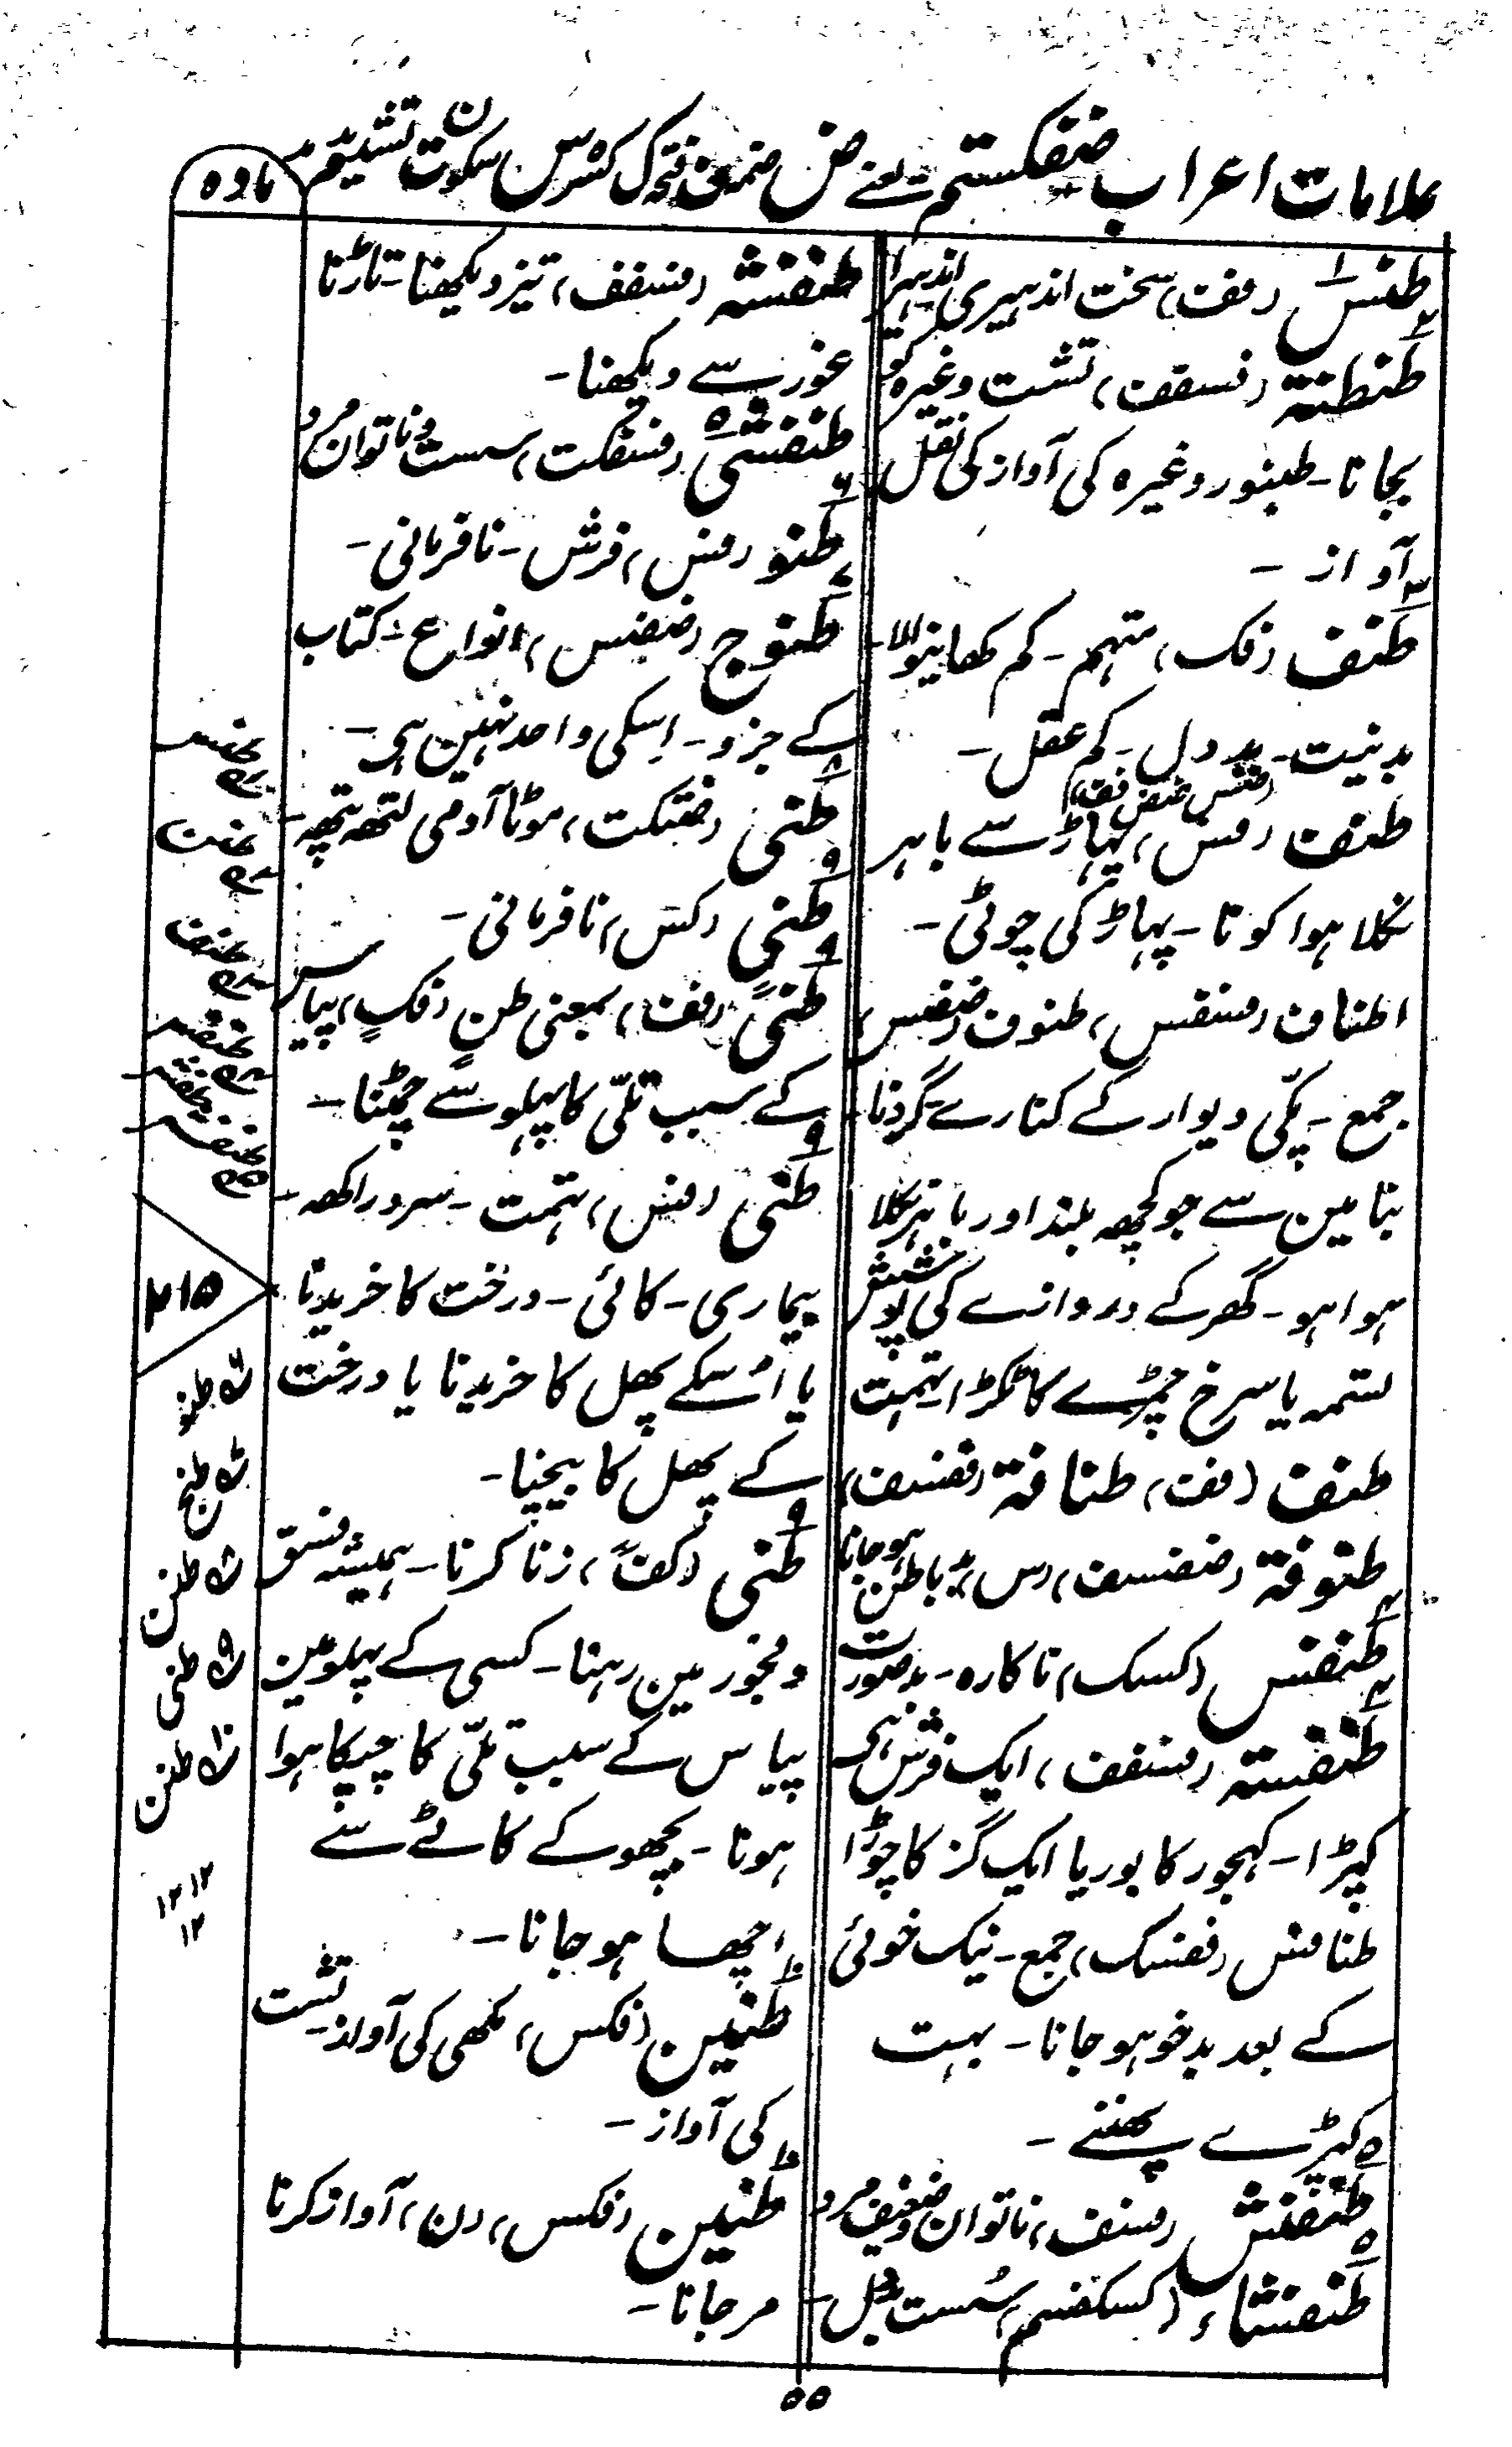 علامات اعراب ضفکستم یعنے ض ضمہ ف فتحہ ک کسرہ س سکون ت تشدید م مد
مادہ
طنس (مف)، سخت اندہیری اندہیرا
طنطنة (فسقف)، تشت وغیرہ کو
بجانا۔ طنبور وغیرہ کی آواز کی نقل
آواز۔
طنف (فک)، متہم۔ کم کھانیوالا۔
بدنیت۔ بد دل۔ کم عقل۔
طنف (فس)، پہاڑ سے باہر
نکلا ہوا کونا۔ پہاڑ کی چوٹی۔
اطناف (فسفس)، طنوف (ضفس)،
جمع۔ پکّی دیوار کے کنارے گردنا۔
بنا مین سے جو کچھ بلند اور باہر نکلا
ہوا ہو۔ گھر کے دروازے کی پوشش
تسمہ یا سرخ چمڑے کا ٹکڑا تہمت
طنف (مف)، طنافة (ففسف)،
طنوفة (ضفسف)، (س)، بد باطن ہو جانا
طنفس (کسک)، ناکارہ۔ بدصورت
طنفسته (فسفف)، ایک فرش ہی
کپڑا۔ کہجور کا بوریا ایک گز کا چوڑا
طنافس (ففسک)، جمع۔ نیک خوئی
کے بعد بدخو ہو جانا۔ بہت
کپڑے پہننے۔
طنفش (فسف)، ناتوان ضعیف مرد
طنفشاء (کسکفسم)، سُست دل۔
طنفشہ (فسفف)، تیز دیکھنا۔ تاڑنا
غور سے دیکھنا۔
طنفشی (فسفکت)، سست و ناتوان مرد
طنو (فس)، فرش۔ نافرمانی۔
طنوج (ضفس)، انواع۔ کتاب
کے جزو۔ اِسکی واحد نہین ہی۔
طنی (فکت)، موٹا آدمی لتھہ پتھہ۔
طنی (کس)، نافرمانی۔
طنیً (فف)، بمعنی طن (فک)، پیاس
کے سبب تلّی کا پہلو سے چمٹنا۔
طنی (فس)، تہمت۔ سرد راکھہ۔
بیماری۔ کائی۔ درخت کا خریدنا
یا اُسکے پھل کا خریدنا یا درخت
کے پھل کا بیچنا۔
طنی (کفً)، زنا کرنا۔ ہمیشہ فسق
و فجور مین رہنا۔ کسی کے پہلو مین
پیاس کے سبب تلّی کا چپکا ہوا
ہونا۔ بچھو کے کاٹے سے
اچھا ہو جانا۔
طنین (فکس)، مکھی کی آواز۔ تشت
کی آواز۔
طنین (فکس)، (ن)، آواز کرنا
مر جانا۔
طنف
۲۱۵
طنو
طنج
طنن
طنی
طنن
۱۲ ۱۲
۱۲
۵۵